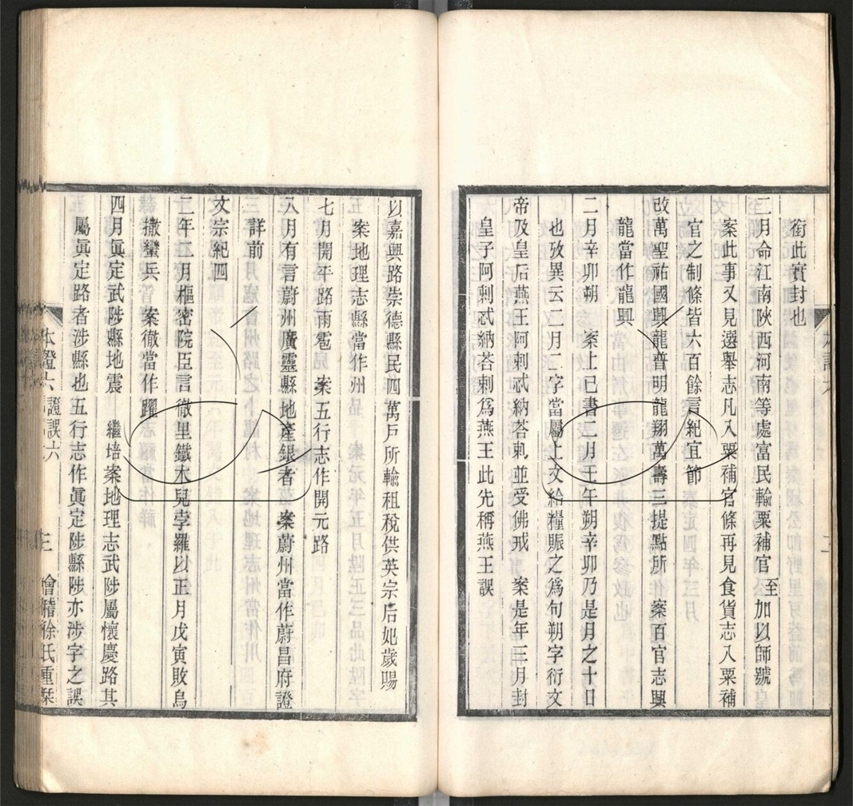 銜此實封也
二月命江南陝西河南等處富民輸粟補官 至加以師號
案此事又見選舉志凡入粟補官條再見食貨志入粟補
官之制條皆六百餘言紀宜節
改萬聖祐國興龍普明龍翔萬壽三提點所 案百官志興
龍當作龍興
二月辛卯朔 案上已書二月壬午朔辛卯乃是月之十日
也攷異云二月二字當屬上文給糧賑之爲句朔字衍文
帝及皇后燕王阿剌忒納荅剌並受佛戒 案是年三月封
皇子阿剌忒納荅剌爲燕王此先稱燕王誤
以嘉興路崇德縣民四萬戶所輸租稅供英宗后妃歲賜
案地理志縣當作州
七月開平路雨雹 案五行志作開元路
八月有言蔚州廣靈縣地產銀者 案蔚州當作蔚昌府證
詳前
文宗紀四
二年二月樞密院臣言徹里鐵木兒孛羅以正月戊寅敗烏
撒蠻兵 案徹當作躍
四月眞定武陟縣地震 繼培案地理志武陟屬懷慶路其
屬眞定路者涉縣也五行志作眞定陟縣陟亦涉字之誤
本證六 證誤六
三 會稽徐氏重栞